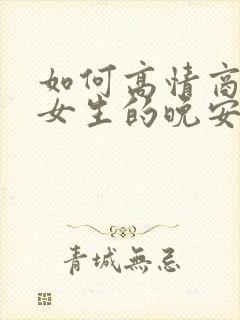 如何高情商
女生的晚安
青城無忌